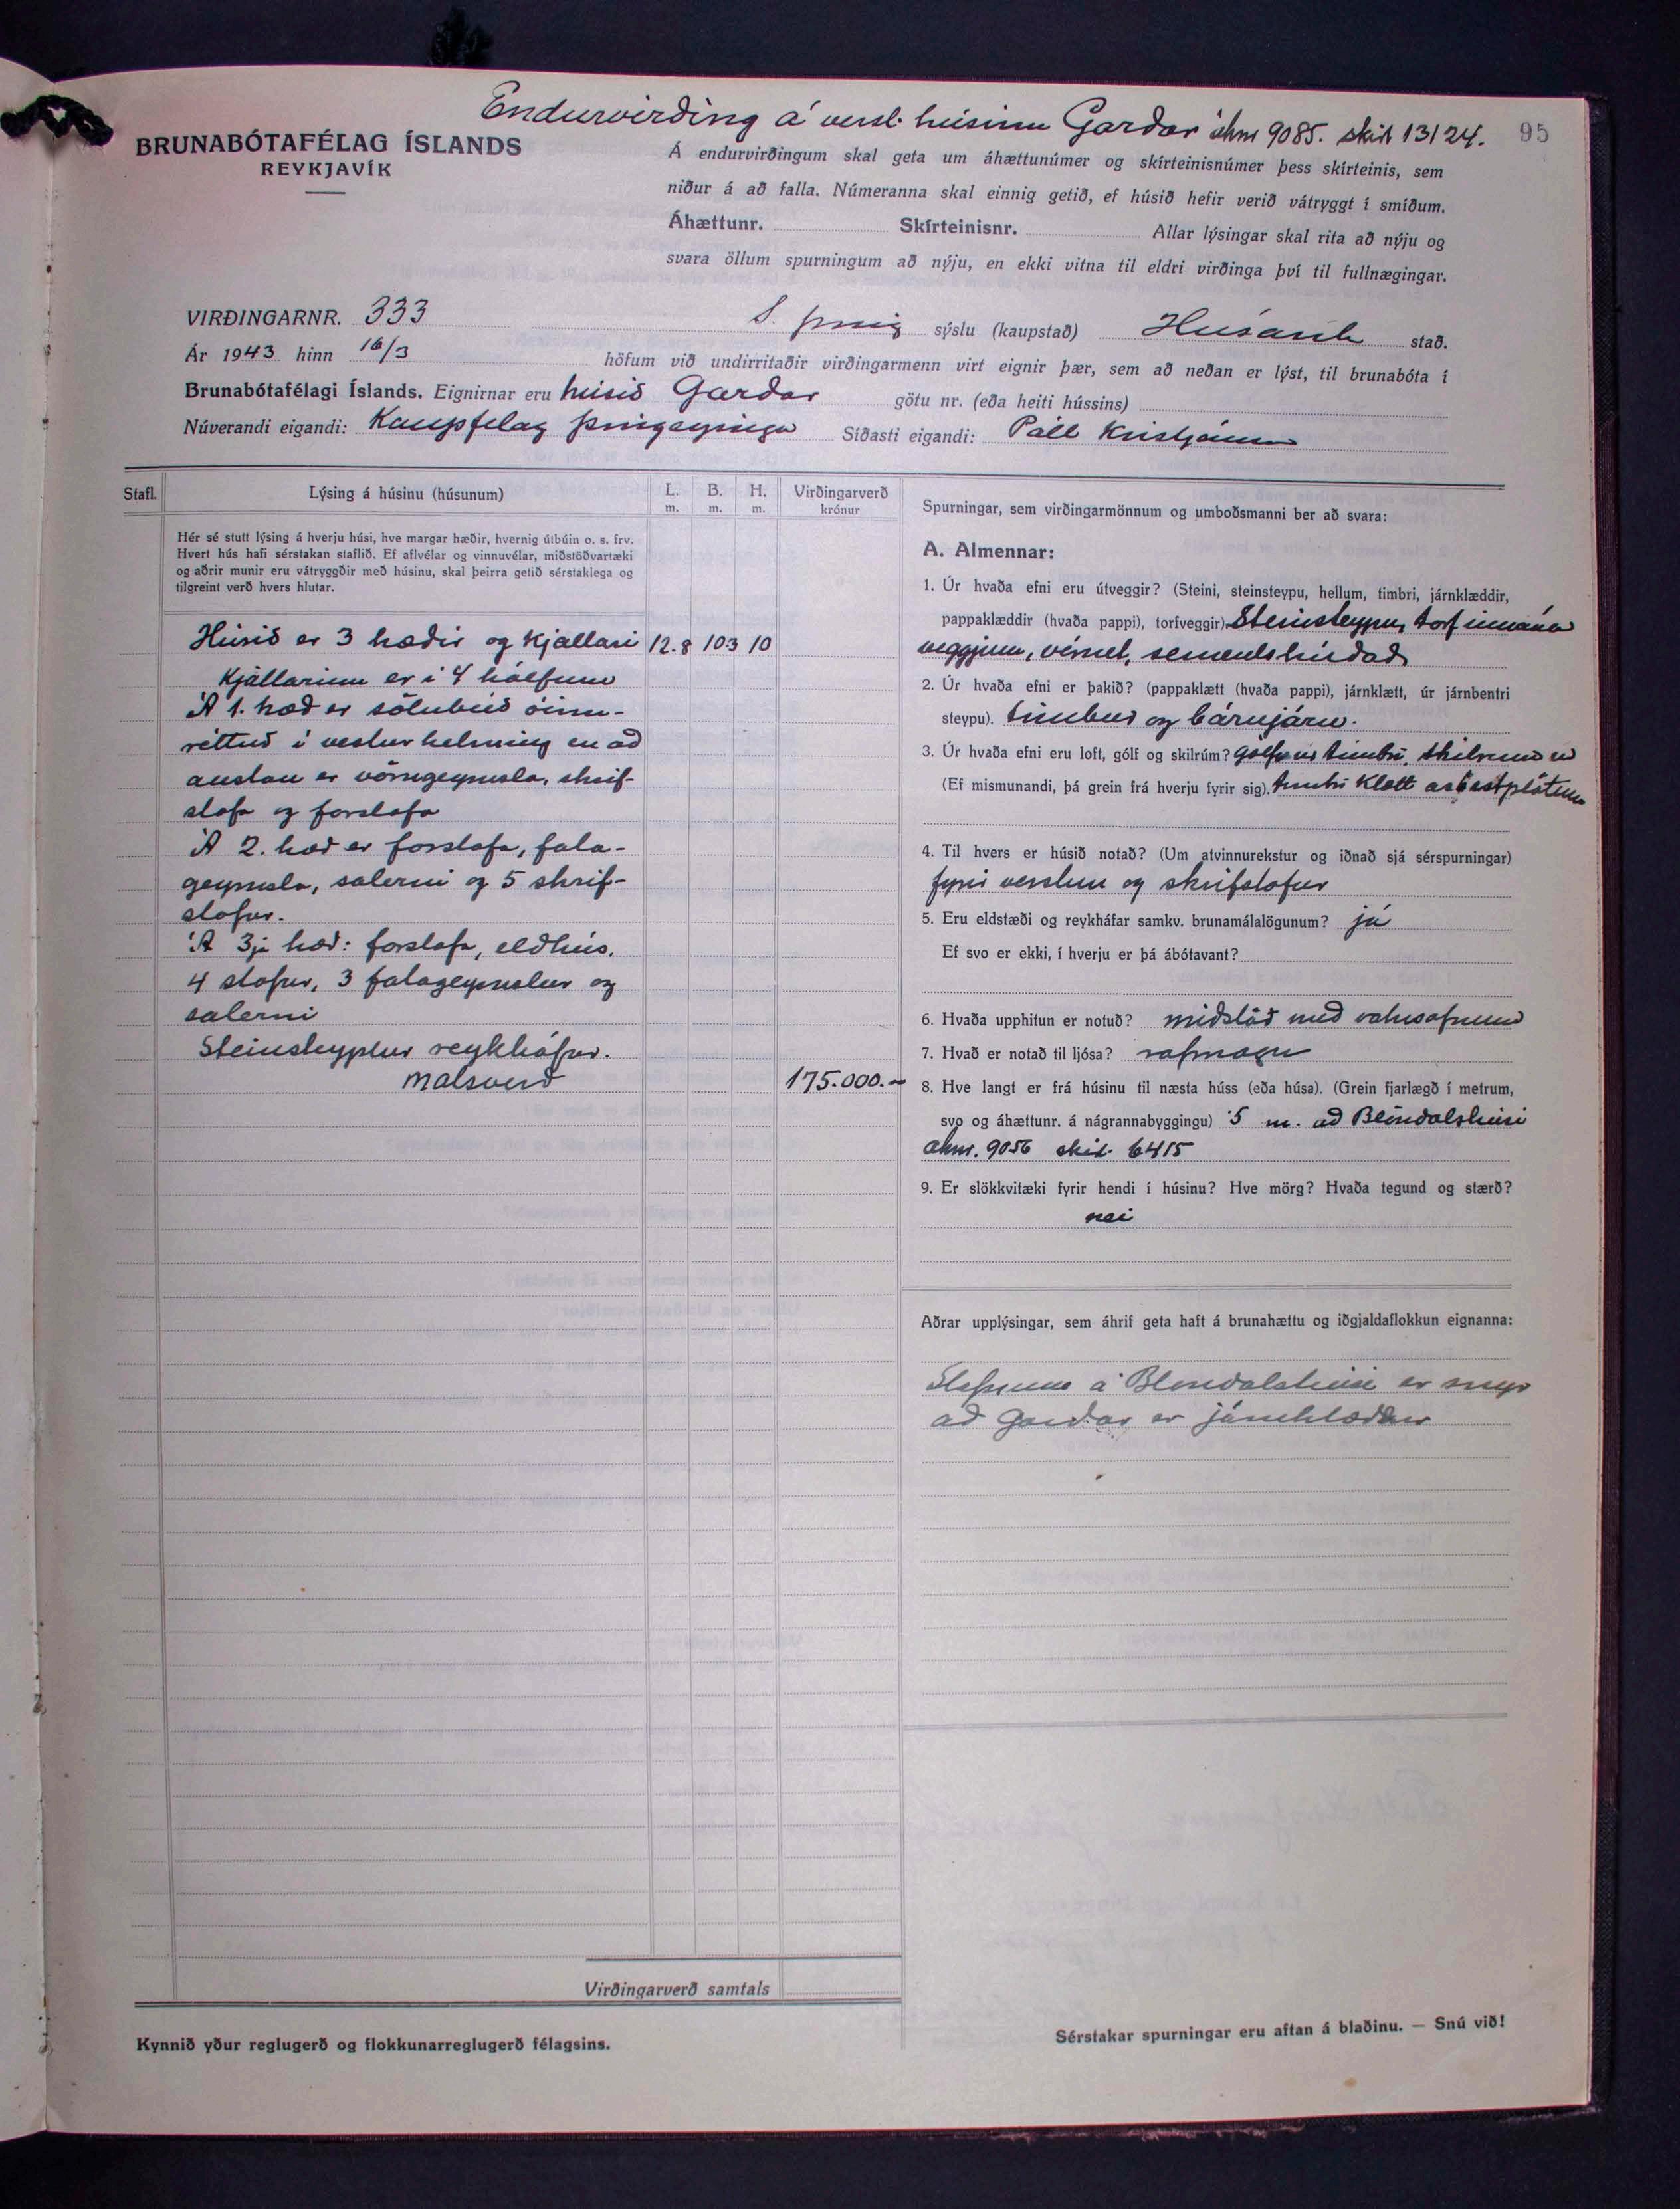 Endurvirðing á versl. húsinu Garðar áhnr 9085. skirt 13124. 95
BRUNABÓTAFÉLAG ÍSLANDS
REYKJAVÍK
Á endurvirðingum skal geta um áhættunúmer og skírteinisnúmer þess skírteinis, sem
niður á að falla. Númeranna skal einnig getið, ef húsið hefir verið vátryggt í smíðum.
Áhættunr. Skírteinisnr. Allar lýsingar skal rita að nýju og
svara öllum spurningum að nýju, en ekki vitna til eldri virðinga því til fullnægingar.
VIRÐINGARNR. 333 S. Þing sýslu (kaupstað) Húsavík stað.
Ár 1943 hinn 16/3 höfum við undirritaðir virðingarmenn virt eignir þær, sem að neðan er lýst, til brunabóta í
Brunabótafélagi Íslands. Eignirnar eru húsið Garðar götu nr. (eða heiti hússins)
Núverandi eigandi: Kaupfélag Þingeyinga Síðasti eigandi: Páll Kristjánsson
Stafl. Lýsing á húsinu (húsunum) L. m. B. m. H. m. Virðingarverð krónur
Hér sé stutt lýsing á hverju húsi, hve margar hæðir, hvernig útbúin o. s. frv.
Hvert hús hafi sérstakan staflið. Ef aflvélar og vinnuvélar, miðstöðvartæki
og aðrir munir eru vátryggðir með húsinu, skal þeirra getið sérstaklega og
tilgreint verð hvers hlutar.
Húsið er 3 hæðir og kjallari 12.8 10.3 10
Kjallarinn er í 4 hólfum
Á 1. hæð er sölubúð óinn-
réttuð í vesturhelming en að
austan er vörugeymsla, skrif-
stofa og forstofa
Á 2. hæð er forstofa, fata-
geymsla, salerni og 5 skrif-
stofur.
Á 3ju hæð: forstofa, eldhús,
4 stofur, 3 fatageymslur og
salerni
Steinsteyptur reykháfur.
Matsverð 175.000.-
Virðingarverð samtals
Kynnið yður reglugerð og flokkunarreglugerð félagsins.
Spurningar, sem virðingarmönnum og umboðsmanni ber að svara:
A. Almennar:
1. Úr hvaða efni eru útveggir? (Steini, steinsteypu, hellum, timbri, járnklæddir,
pappaklæddir (hvaða pappi), torfveggir). Steinsteypu, torf innan á
veggjum, vírnet, sementshúðað
2. Úr hvaða efni er þakið? (pappaklætt (hvaða pappi), járnklætt, úr járnbentri
steypu). timbur og bárujárn.
3. Úr hvaða efni eru loft, gólf og skilrúm? gólf úr timbri, skilrúm úr
(Ef mismunandi, þá grein frá hverju fyrir sig). timbri klætt asbestplötum
4. Til hvers er húsið notað? (Um atvinnurekstur og iðnað sjá sérspurningar)
fyrir verslun og skrifstofur
5. Eru eldstæði og reykháfar samkv. brunamálalögunum? já
Ef svo er ekki, í hverju er þá ábótavant?
6. Hvaða upphitun er notuð? miðstöð með vatnsofnum
7. Hvað er notað til ljósa? rafmagn
8. Hve langt er frá húsinu til næsta húss (eða húsa). (Grein fjarlægð í metrum,
svo og áhættunr. á nágrannabyggingu) 5 m. að Blöndalshúsi
áhnr. 9056 skirt. 6415
9. Er slökkvitæki fyrir hendi í húsinu? Hve mörg? Hvaða tegund og stærð?
nei
Aðrar upplýsingar, sem áhrif geta haft á brunahættu og iðgjaldaflokkun eignanna:
Stafninn á Blöndalshúsi er snýr
að Garðar er járnklæddur
Sérstakar spurningar eru aftan á blaðinu. — Snú við!